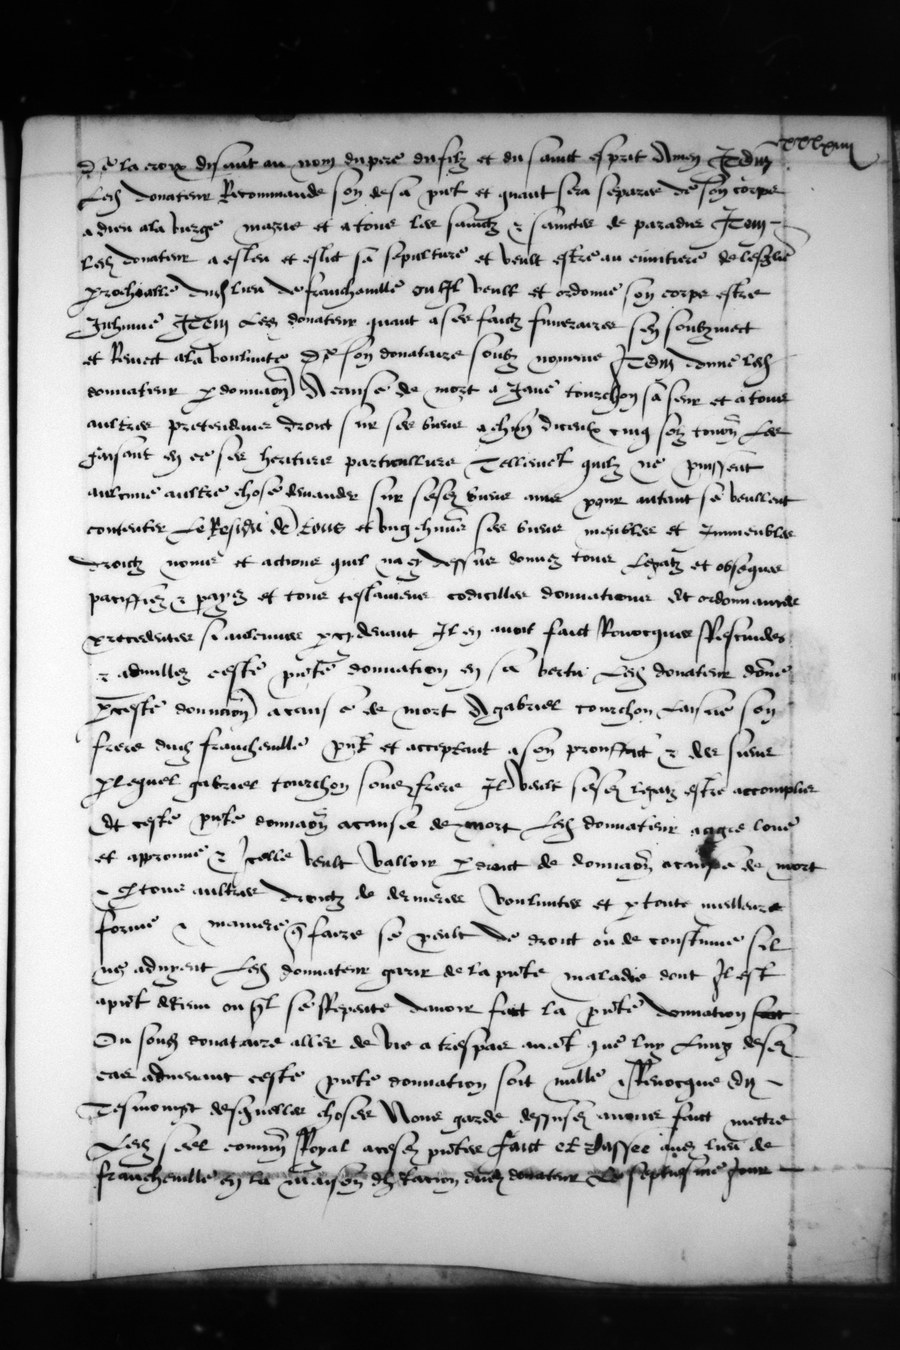 de la croix disant au nom du pere du filz et du sainct esprit Amen Item
Led donateur Recommande son de sa pnt et quant sera separee de son corps
a dieu a la vierge marie et a tous les sainctz & sainctes de paradis Item
led donateur a esleu et eslit sa sepulture et veult estre au cimitiere de leglise
prochialle dud lieu de francheville ou Il veult et ordonne son corps estre
Inhume Item Led donateur quant a ses faictz funeraires sen soubzmect
et Remect a la voulunte de son donataire soubz nomme Item donne led
donnateur p donnaon A cause de mort a Jane tourchon sa seur et a tous
aultres pretendans droict sur ses biens a chun diceulx cinq solz tournois Les
faisant en ce ses heritiers particulliers Tellement quilz ne puissent
aulcune aultre chose demander sur sesd biens ains pour autant se veullent
contenter Le Residu de tous et ungchuns ses biens meubles et Immeubles
droictz noms et actions quil na cy dessus donnez tous Legatz et obseques
paciffiez & payez et tous testamens codicilles donnations et ordonnances
precedentes si aulcunes pcydevant Il en avoit faict Revocquees Rescindees
& adnullez ceste pnte donnation en sa vertu Led donateur donne
p ceste donnaion a cause de mort A gabriel tourchon son
frere dud francheville pnt et acceptant a son prouffict & des siens
p lequel gabriel tourchon sond frere Il veult sesd legatz estre accomplis
Et ceste pnte donnaon a cause de mort Led donnateur a agree loue
et approuve & Icelle veult valloir p droict de donnaon a cause de mort
& p tous aultres droictz de dernieres voulontes et p toute meilleure
forme & maniere q faire se peult de droict ou de coustume sil
nes advyent Led donnateur garir de la pnte maladie dont Il est
apnt detenu ou ql se Repente davoir faict la pnte donnation
Ou sond donataire aller de vie a trespas avant que luy Lung desd
cas advenant ceste pnte donnation soit nulle Revocquee En
Tesmoingt desquelles choses Nous garde dessusd avons faict mectre
Led seel commun Royal a cesd pntes faict et passee aud lieu de
francheville en la maison dhabitacion dud donateur Le septiesme Jour